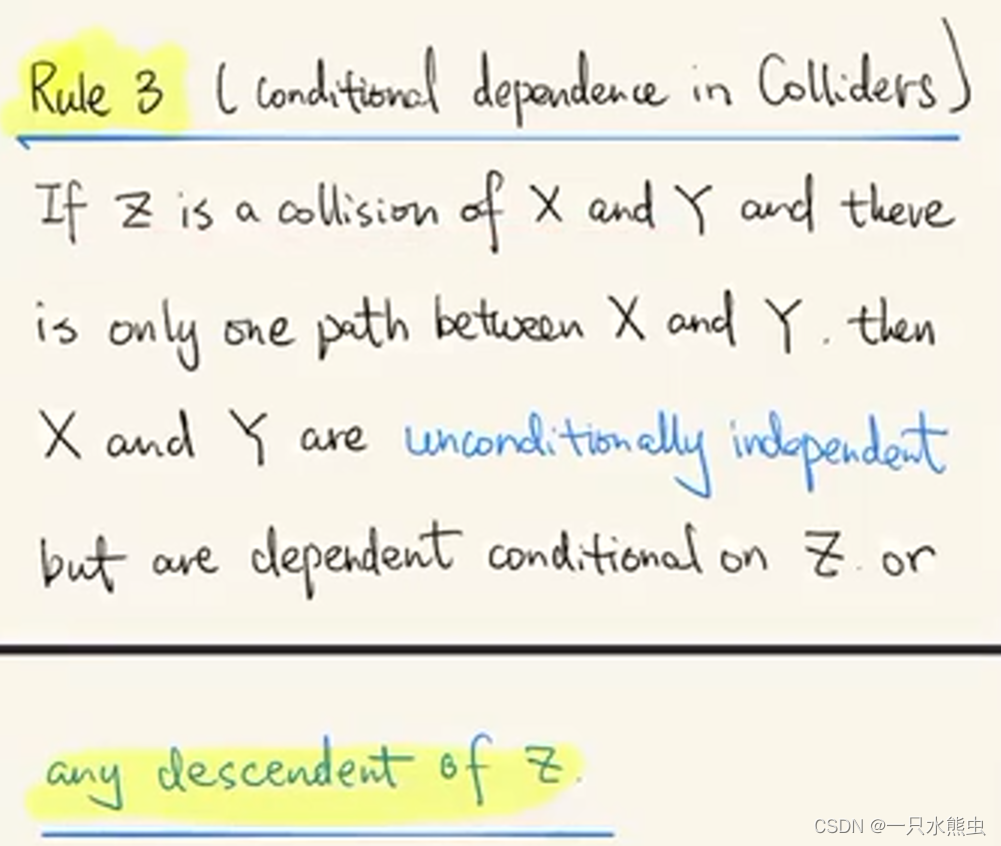 Rule 3 (Conditional dependence in Colliders)
If Z is a collision of X and Y and there
is only one path between X and Y. then
X and Y are unconditionally independent
but are dependent conditional on Z. or
any descendent of Z.
CSDN @一只水熊虫